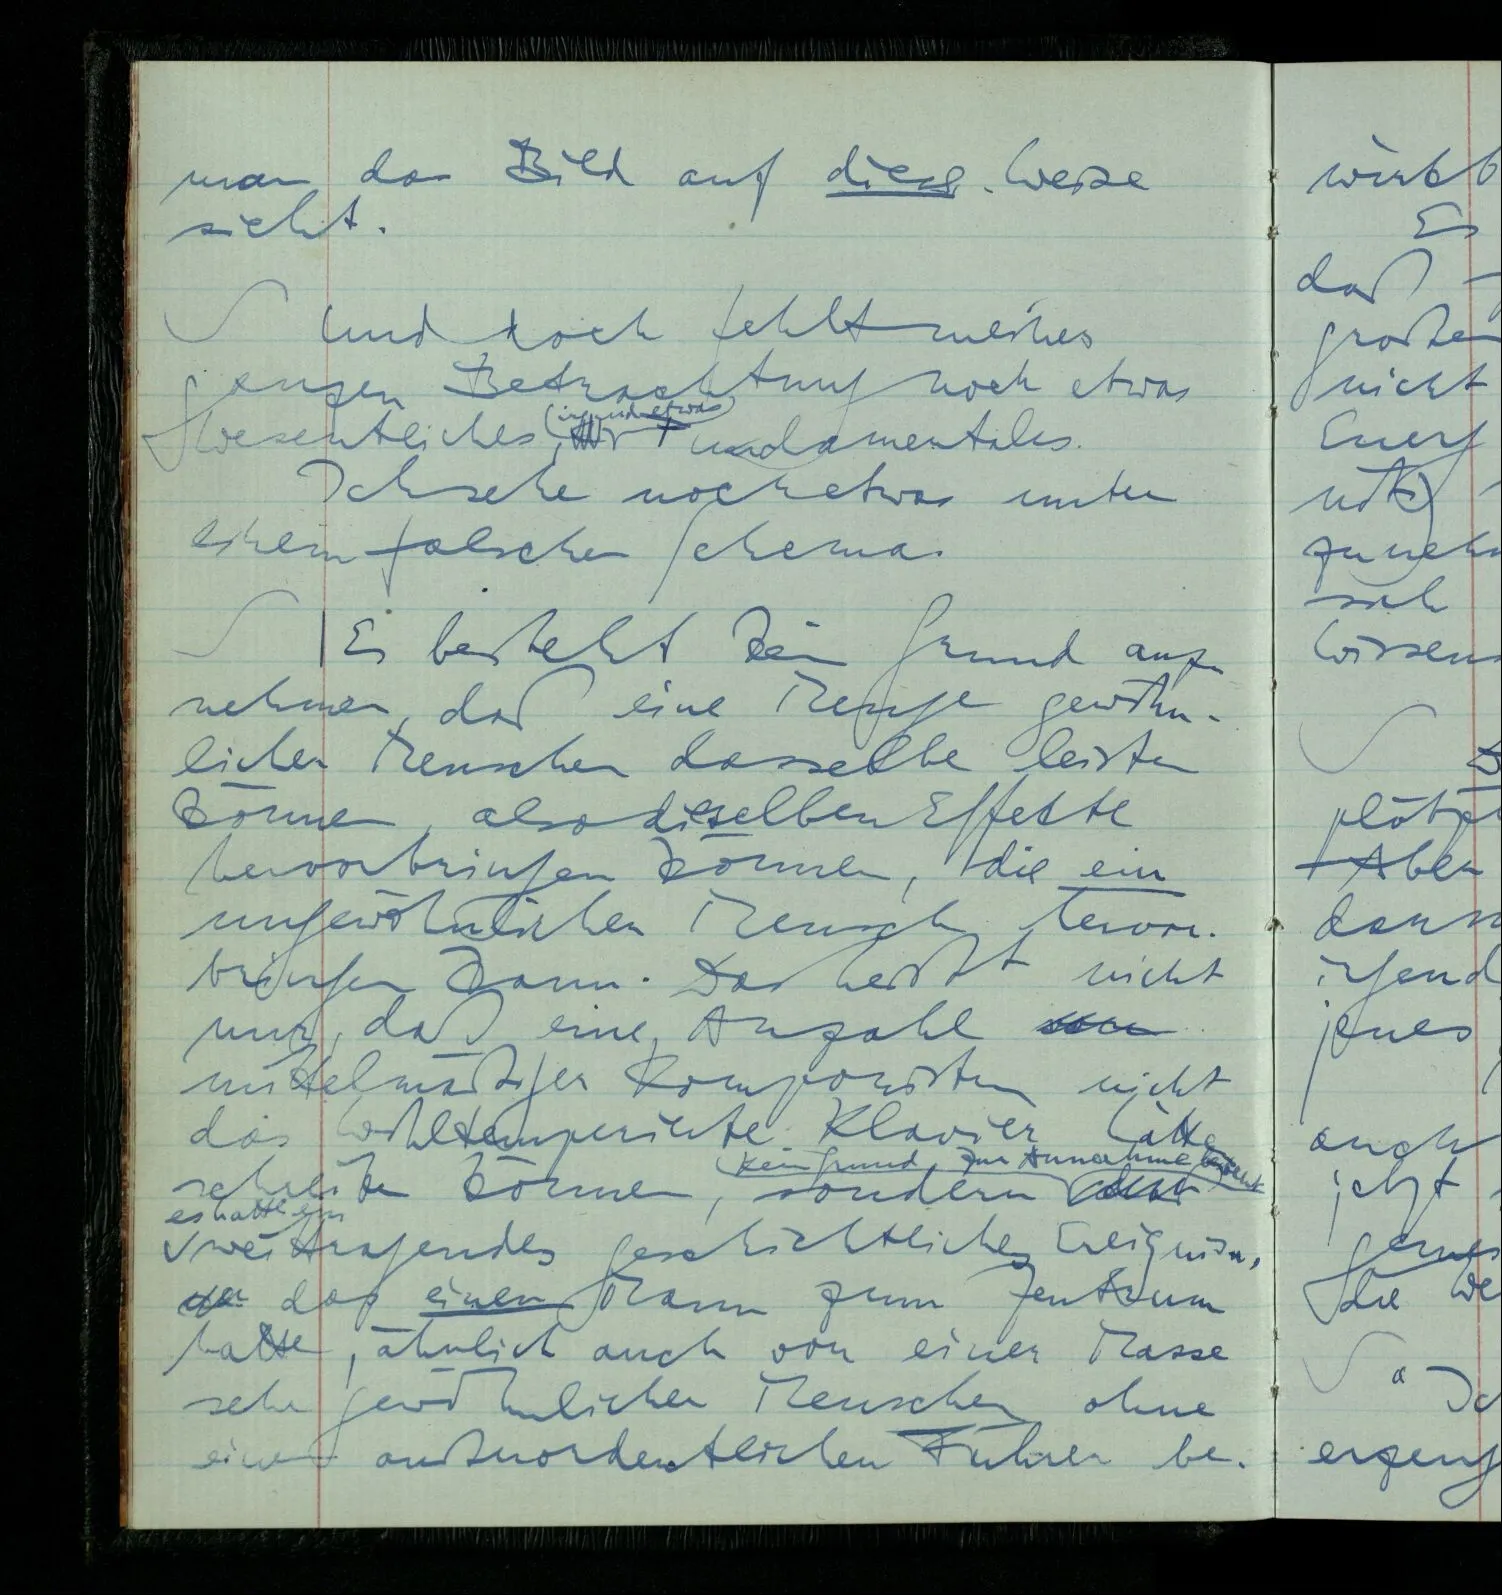 man das Bild auf diese Weise
sieht.
Und doch fehlt meiner
ganzen Betrachtung noch etwas
(irgend etwas)
Wesentliches, Fundamentales.
Ich sehe noch etwas unter
einem falschen Schema.
Es besteht kein Grund anzu
nehmen, daß eine Menge gewöhn-
licher Menschen dasselbe leisten
können, also dieselben Effekte
hervorbringen können, die ein
ungewöhnlicher Mensch hervor-
bringen kann. Das heißt nicht
nur, daß eine Anzahl
mittelmäßiger Komponisten nicht
das Wohltemperierte Klavier hätte
kein Grund zur Annahme besteht
schreiben können, sondern
es hätte ein
weittragendes geschichtliches Ereignis,
das einen Mann zum Zentrum
hatte, ähnlich auch von einer Masse
sehr gewöhnlicher Menschen ohne
einen außerordentlichen Führer be-
Es
daß
großen
nicht
zu nehm
sich
Wissens
Aber
irgend
jenes
auch
jetzt
die We